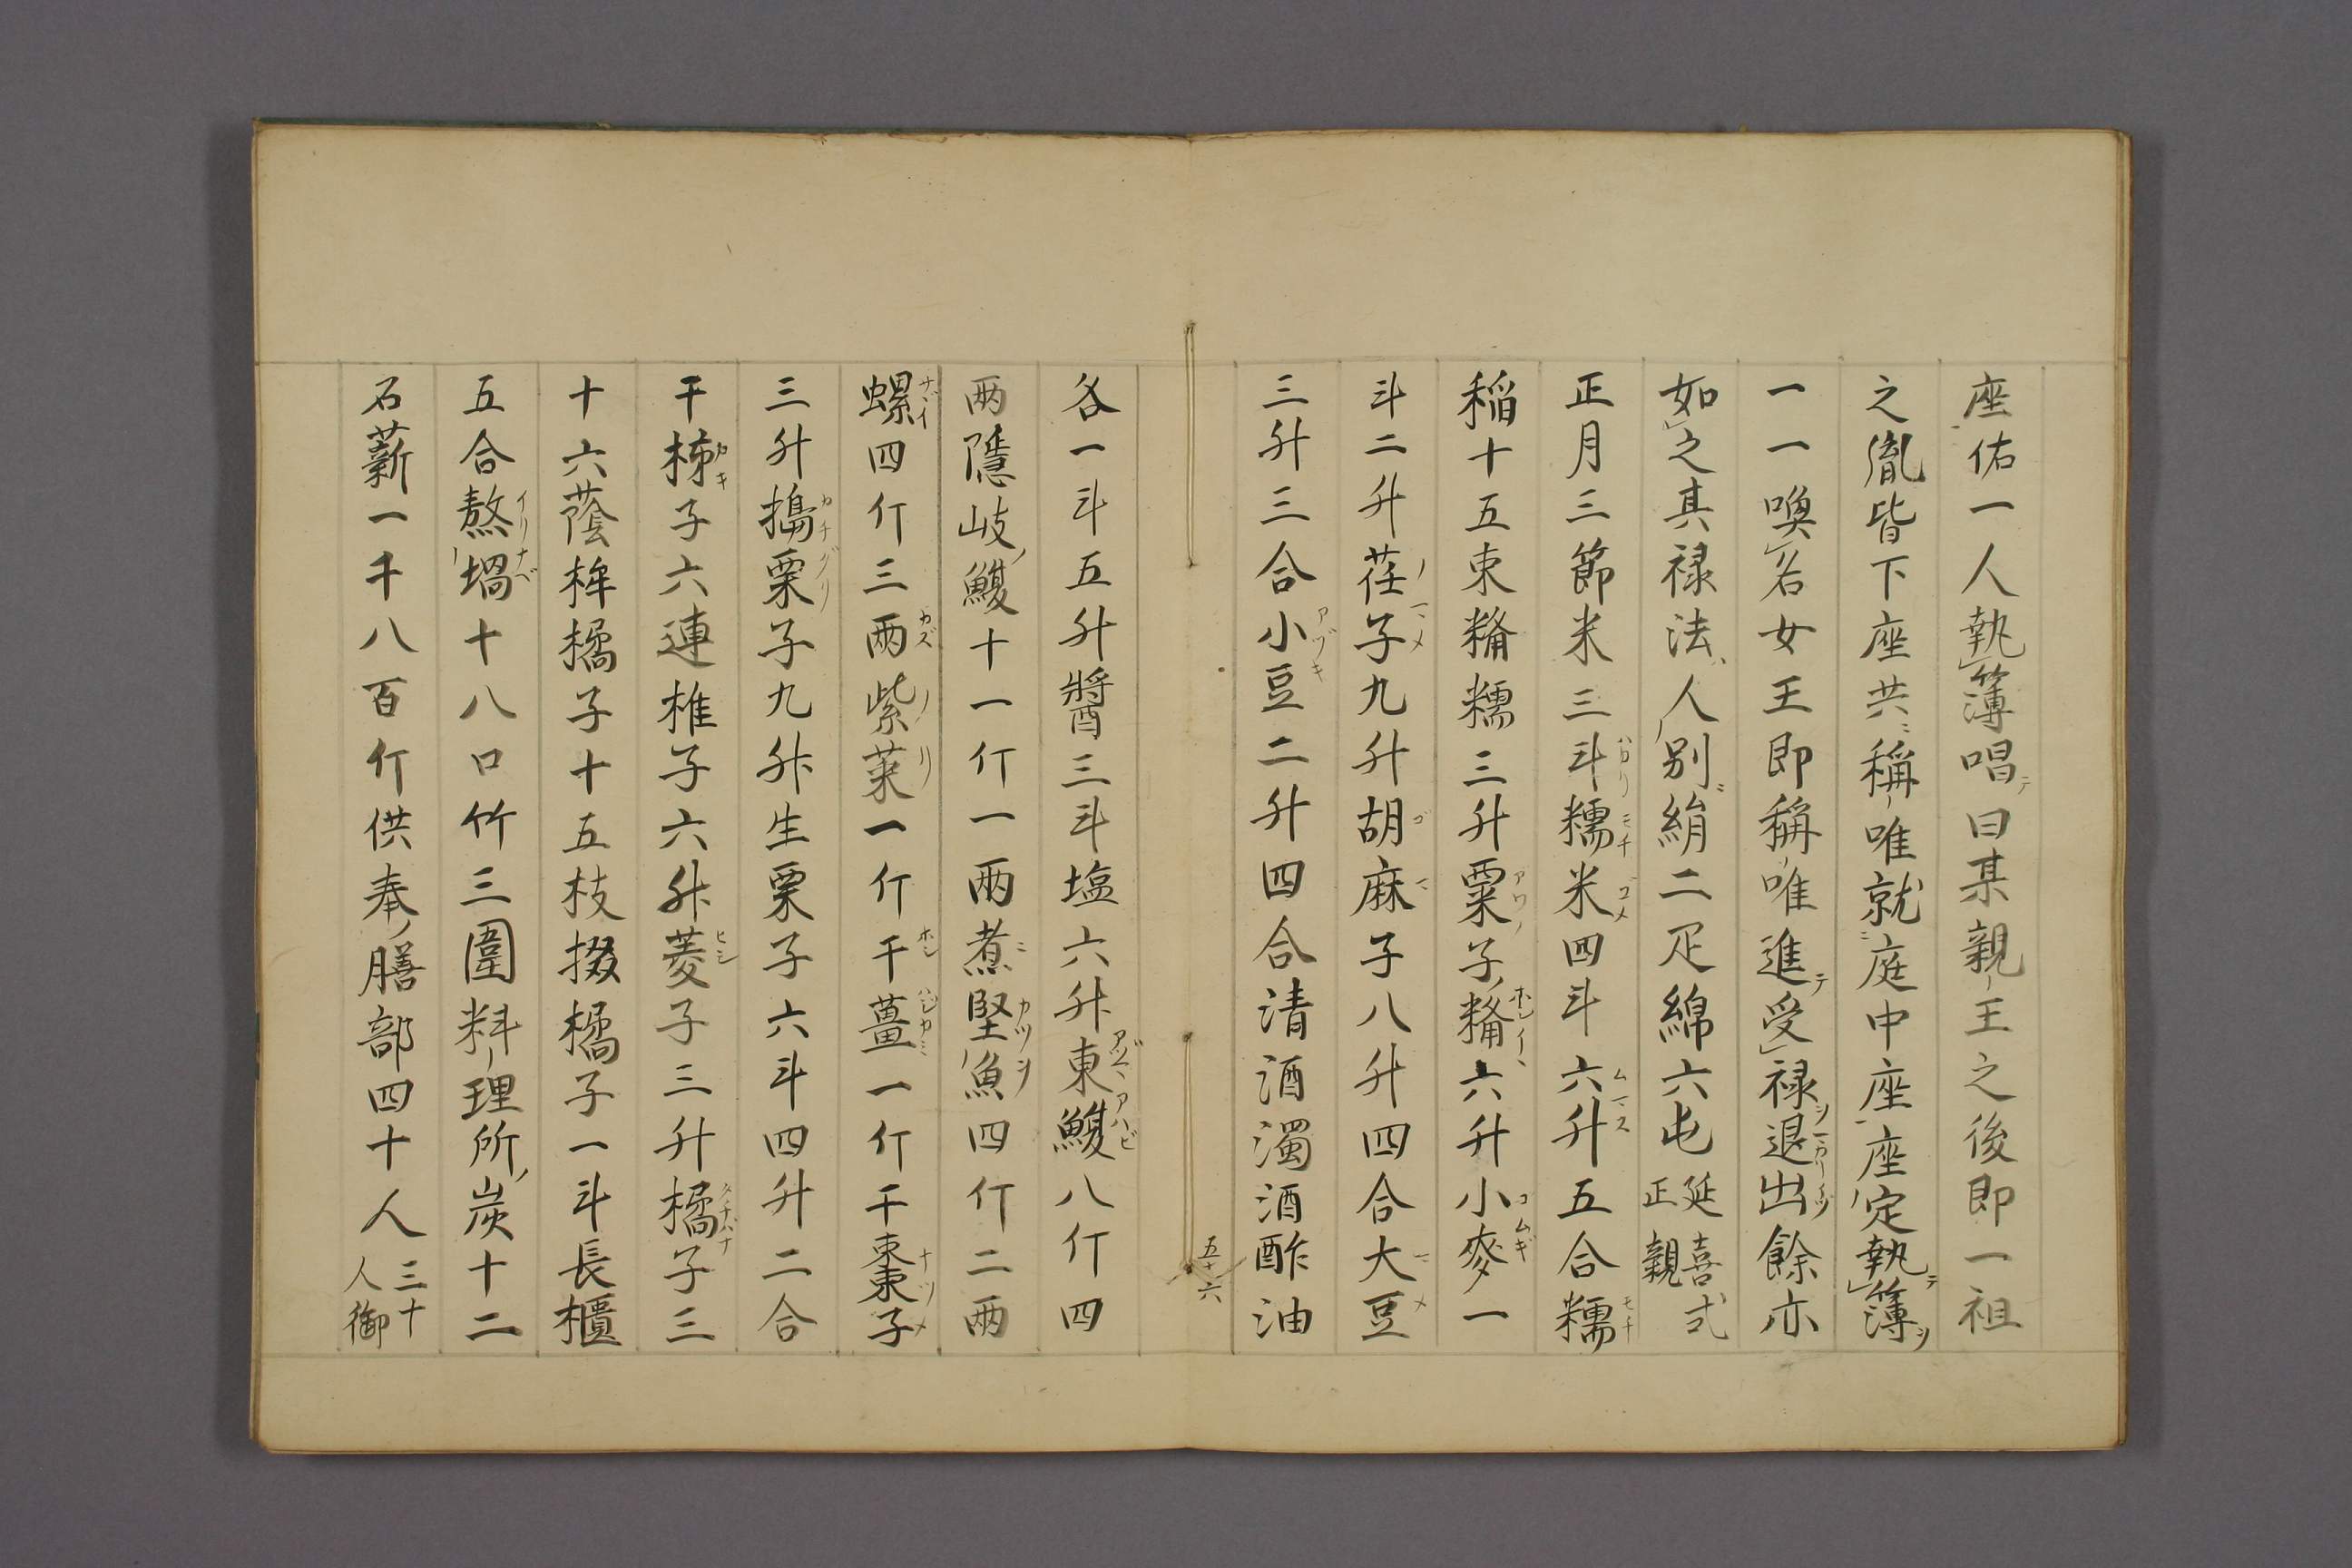 座佑一人執簿唱曰某親王之後即一祖
之胤皆下座共稱唯就庭中座座定執簿
一一喚名女王即稱唯進受禄退出餘亦
如之其禄法人別絹二疋綿六屯延喜式正親
正月三節米三斗糯米四斗六升五合糯
稲十五束糒糯三升粟子糒六升小麥一
斗二升荏子九升胡麻子八升四合大豆
三升三合小豆二升四合清酒濁酒酢油
五十六
各一斗五升醬三斗塩六升東鰒八斤四
两隱岐鰒十一斤一兩煮堅魚四斤二两
螺四斤三两紫菜一斤干薑一斤干棗子
三升搗栗子九升生栗子六斗四升二合
干柹子六連椎子六升菱子三升橘子三
十六蔭桙橘子十五枝掇橘子一斗長櫃
五合熬堝十八口竹三圍料理所炭十二
石薪一千八百斤供奉膳部四十人三十人御